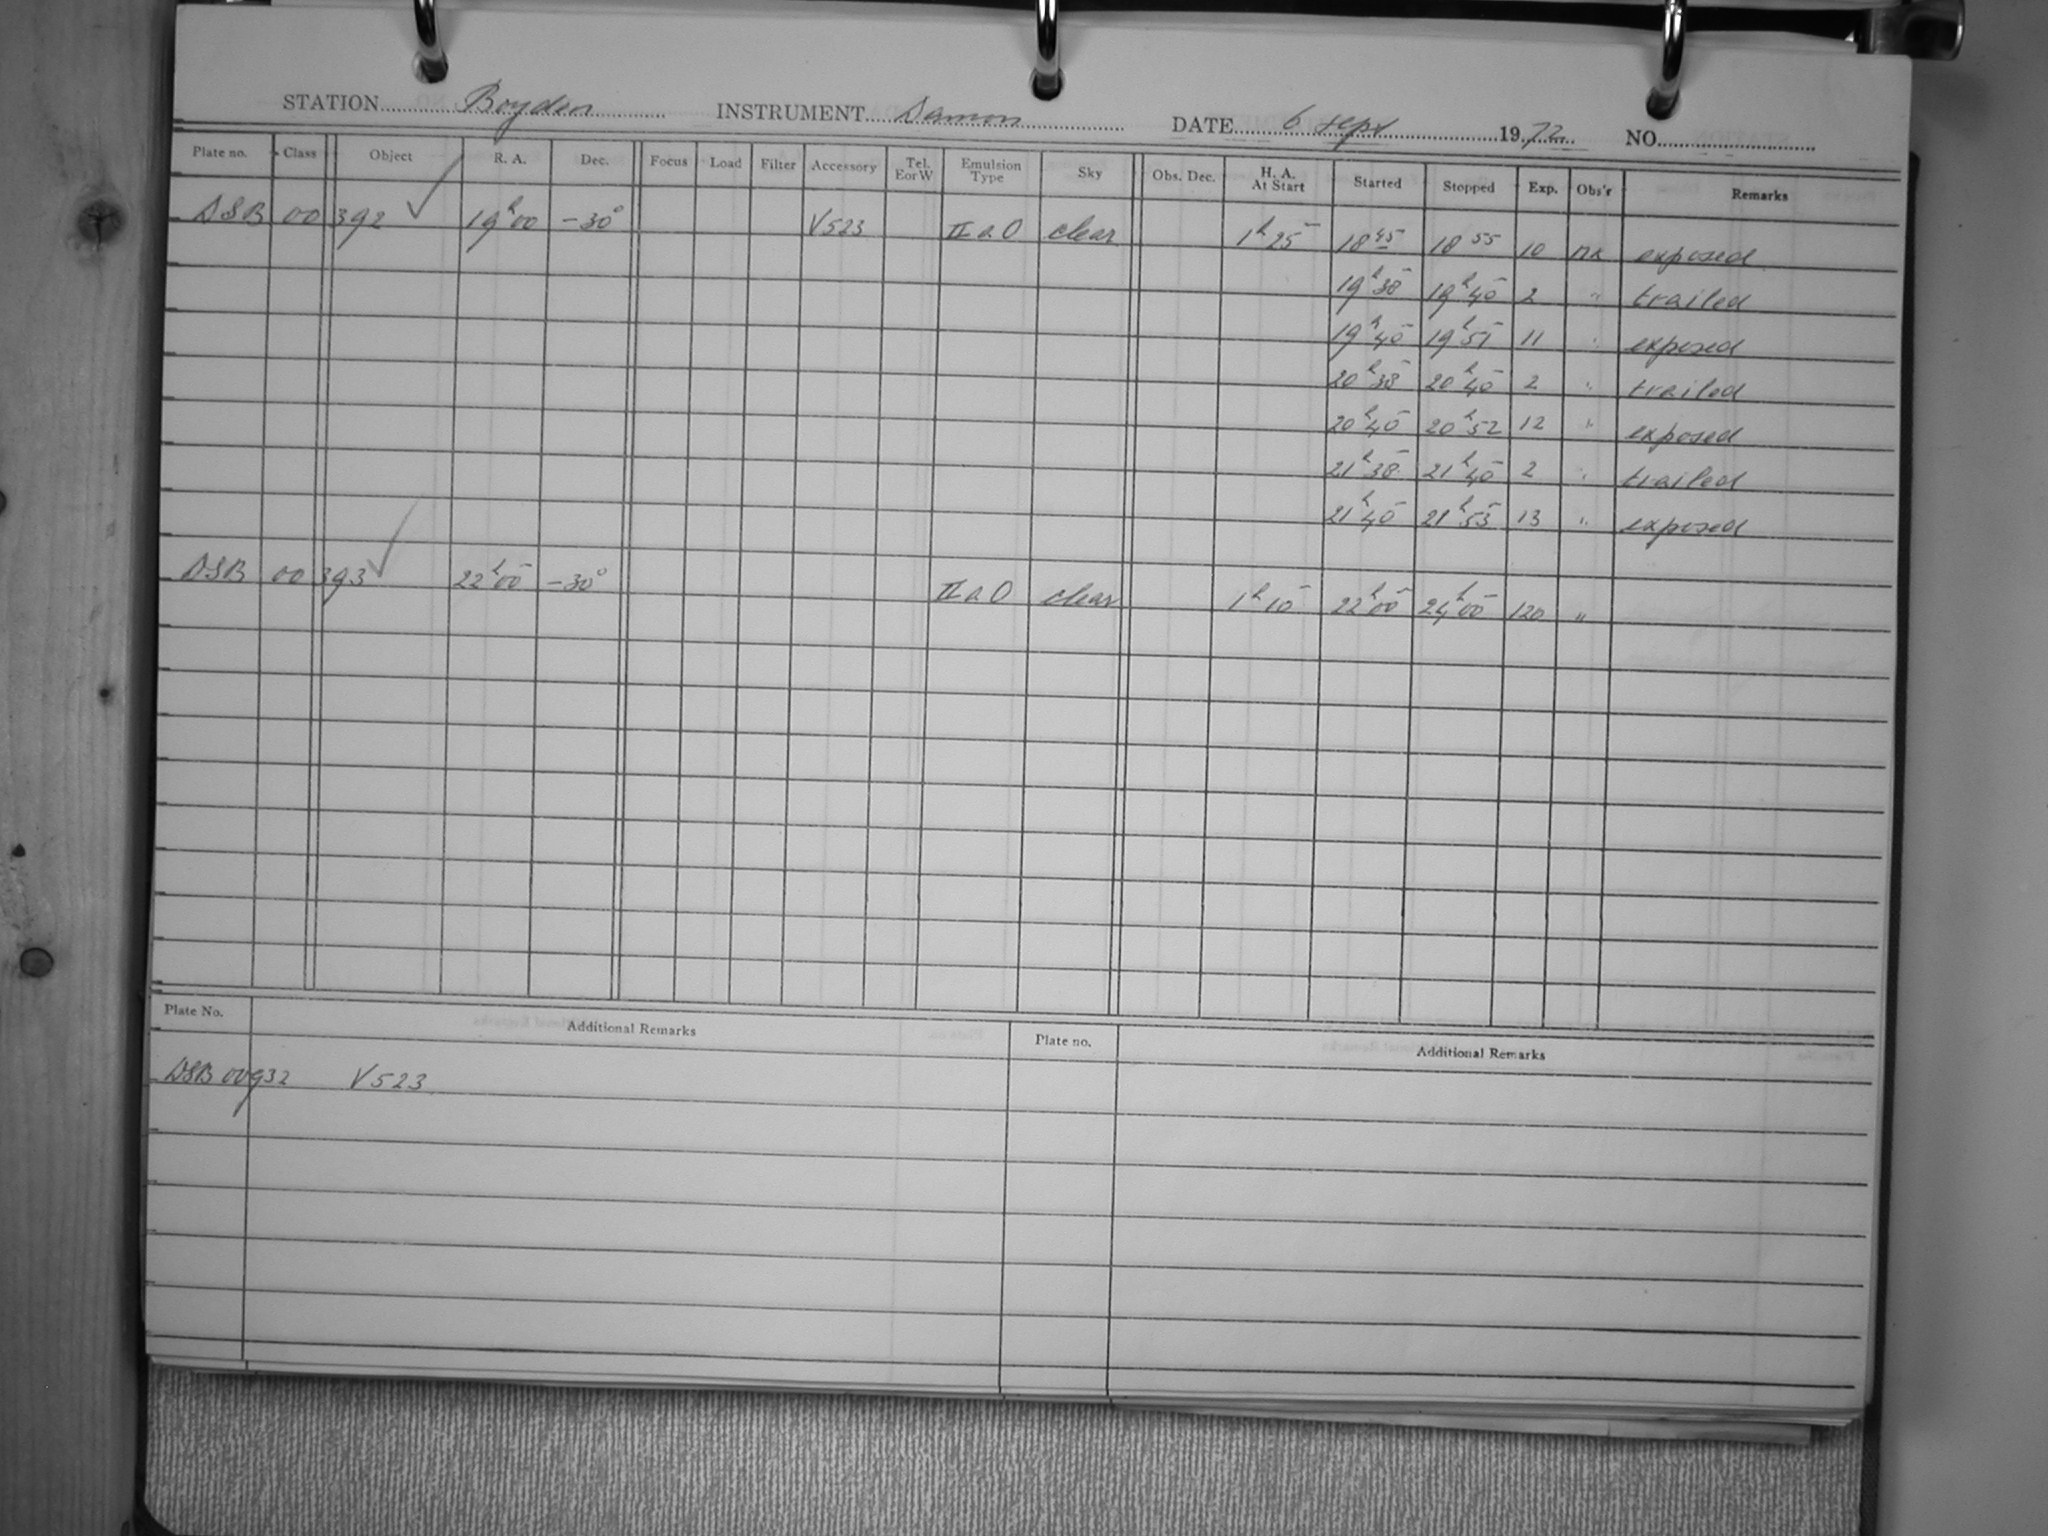 STATION Boyden INSTRUMENT Damon DATE 6 sept 1972 NO.
Plate no. Class Object R. A. Dec. Focus Load Filter Accessory Tel. E or W Emulsion Type Sky Obs. Dec. H. A. At Start Started Stopped Exp. Obs'r Remarks
DSB 00 392 ✓ 19h00 -30° V523 IIaO clear 1h25 18 45 18 55 10 exposed
19h38 19h40 2 " trailed
19h40 19h51 11 " exposed
20h38 20h40 2 " trailed
20h40 20h52 12 " exposed
21h38 21h40 2 " trailed
21h40 21h53 13 " exposed
DSB 00 393 ✓ 22h00 -30° IIaO clear 1h10 22h00 24h00 120 "
Plate No. Additional Remarks Plate no. Additional Remarks
DSB 00932 V523